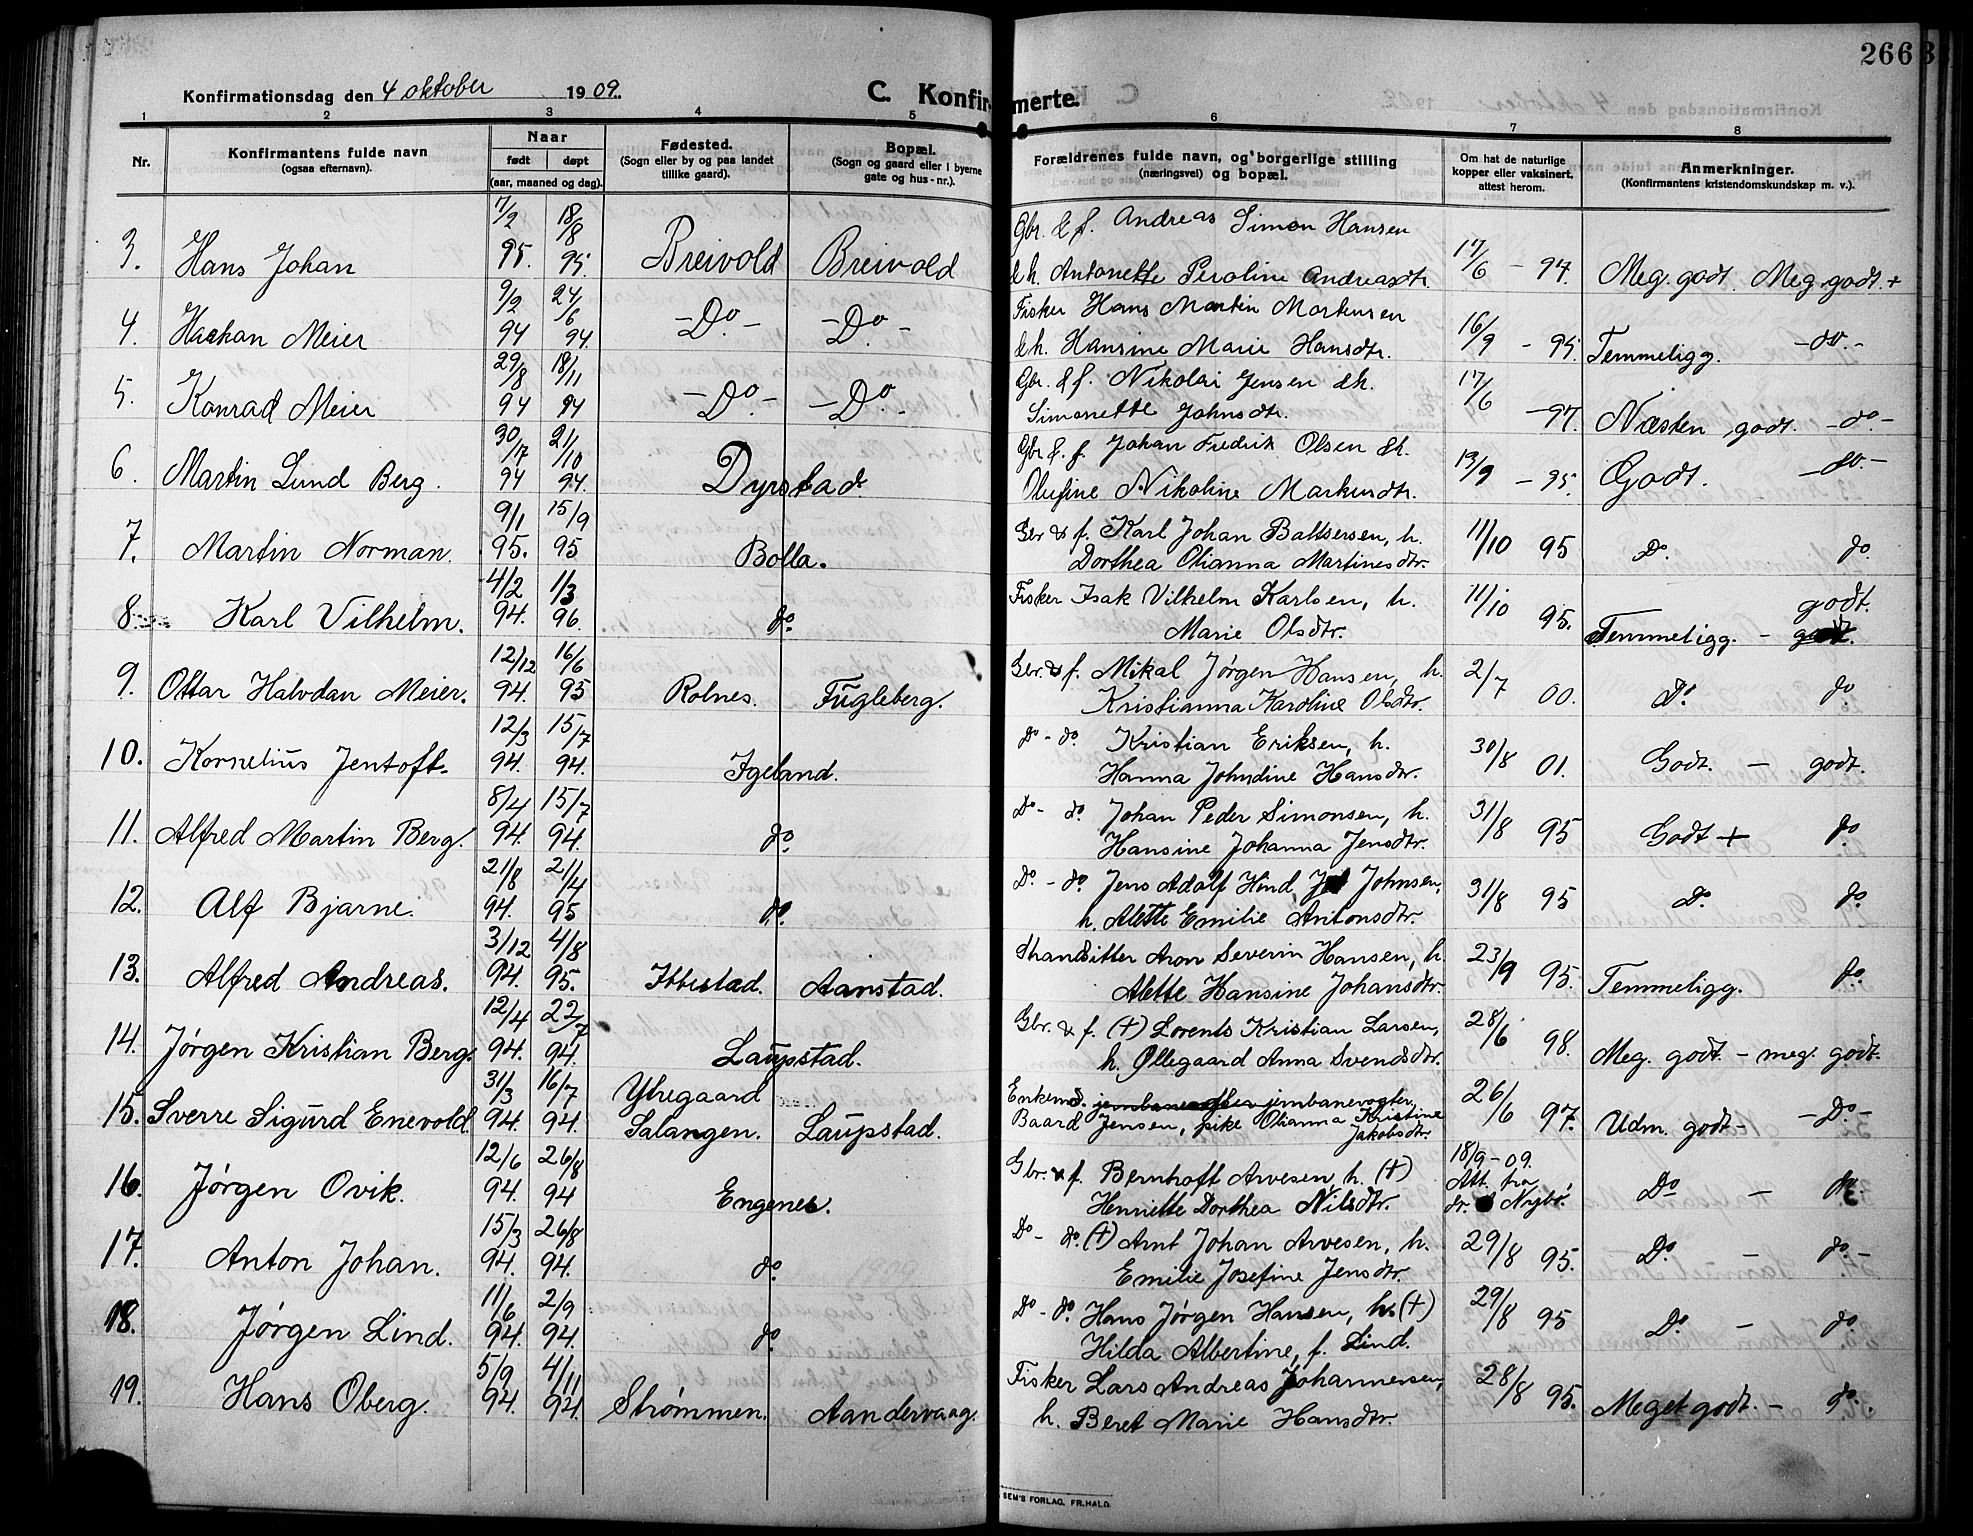 266
Konfirmationsdag den 4 oktober 1909.
C. Konfirmerte.
1 2 3 4 5 6 7 8
Nr.
Konfirmantens fulde navn
(ogsaa efternavn).
Naar
født døpt
(aar, maaned og dag).
Fødested.
(Sogn eller by og paa landet
tillike gaard).
Bopæl.
(Sogn og gaard eller i byerne
gate og hus-nr.).
Forældrenes fulde navn, og borgerlige stilling
(næringsvei) og bopæl.
Om hat de naturlige
kopper eller vaksinert,
attest herom.
Anmerkninger.
(Konfirmantens kristendomskundskap m. v.).
7/2 18/8 Gbr. & f. Andreas Simon Hansen
3. Hans Johan 95. 95. Breivold Breivold &h. Antonette Peroline Andreasdtr. 17/6 - 97. Meg. godt. Meg. godt. +
9/2 24/6 Fisker Hans Martin Martensen
4. Haakan Meier 94 94. -Do- -Do- &h. Hansine Marie Hansdtr. 16/9 - 95. Temmeligg. -do.-
29/8 18/11 Gbr. & f. Nikolai Jensen &h.
5. Konrad Meier 94 94 -Do- -Do- Simonette Johnsdtr. 17/6 -97. Næsten godt. -do-
30/17 21/10 Gbr & f. Johan Fredrik Olsen &h.
6. Martin Lund Berg. 94 94. Dyrstad. Olufine Nikoline Markusdtr. 13/9 - 95. Godt. -do.-
9/1 15/9 Gbr & f. Karl Johan Baltsersen, h.
7. Martin Norman. 95. 95 Bolla. Dorthea Olianna Martinesdtr. 11/10 95 Do. do.
4/2 1/3 Fisker Isak Vilhelm Karlsen, h. godt.
8. Karl Vilhelm. 94. 96. do. Marie Olsdtr. 11/10 95. Temmeligg. - godt.
12/12 16/6 Gbr. & f. Mikal Jørgen Hansen, h.
9. Ottar Halvdan Meier. 94. 95 Rolnes. Fugleberg. Kristianna Karoline Olsdtr. 2/7 00. Do. do.
12/3 15/7 Do - do. Kristian Eriksen, h.
10. Kornelius Jentoft. 94. 94. Igeland. Hanna Johndine Hansdtr. 30/8 01. Godt. - godt.
8/4 15/7 Do - do. Johan Peder Simonsen, h.
11. Alfred Martin Berg. 94. 94. do. Hansine Johanna Jensdtr. 31/8 95 Godt + do.
21/8 21/4 Do. - do. Jens Adolf Hind Johnsen,
12. Alf Bjarne. 94. 95 do. h. Alette Emilie Antonsdtr. 31/8 95 Do. do.
3/12 4/8 Strandsitter Aron Severin Hansen, h.
13. Alfred Andreas. 94. 95. Ibbestad. Aanstad. Alette Hansine Johansdtr. 23/9 95. Temmeligg. do.
12/4 22/7 Gbr. & f. (+) Lorents Kristian Larsen,
14. Jørgen Kristian Berg. 94. 94. Laupstad. h. Ollegaard Anna Svendsdtr. 28/6 98. Meg. godt. - meg. godt.
31/3 16/7 Ytregaard Enkemd. jernbanevogter
15. Sverre Sigurd Enevold. 94. 94. Salangen. Laupstad. Baard Jensen, pike Olianna Kristine Jakobsdtr. 26/6 97. Udm. godt - -Do-
12/6 26/8 Gbr. & f. Bernhoft Arvesen, h. (+) 18/9 - 09.
16. Jørgen Ovik. 94. 94 Engenes. Henriette Dorthea Nilsdtr. Att. fra dr. Nygbo. Do - do.
15/3 26/8 Do - do. (+) Arnt Johan Arvesen, h.
17. Anton Johan. 94. 94. do. Emilie Josefine Jensdtr. 29/8 95. Do. - do. -
11/6 2/9 Do - do. Hans Jørgen Hansen, h. (+)
18. Jørgen Lind. 94. 94. do. Hilda Albertine, f. Lind. 29/8 95 Do. - do.
5/9 4/11 Fisker Lars Andreas Johannesen,
19. Hans Oberg. 94. 94. Strømmen. Aandervaag. h. Beret Marie Hansdtr. 28/8 95. Meget godt. - do.
SEM'S FORLAG, FR.HALD.